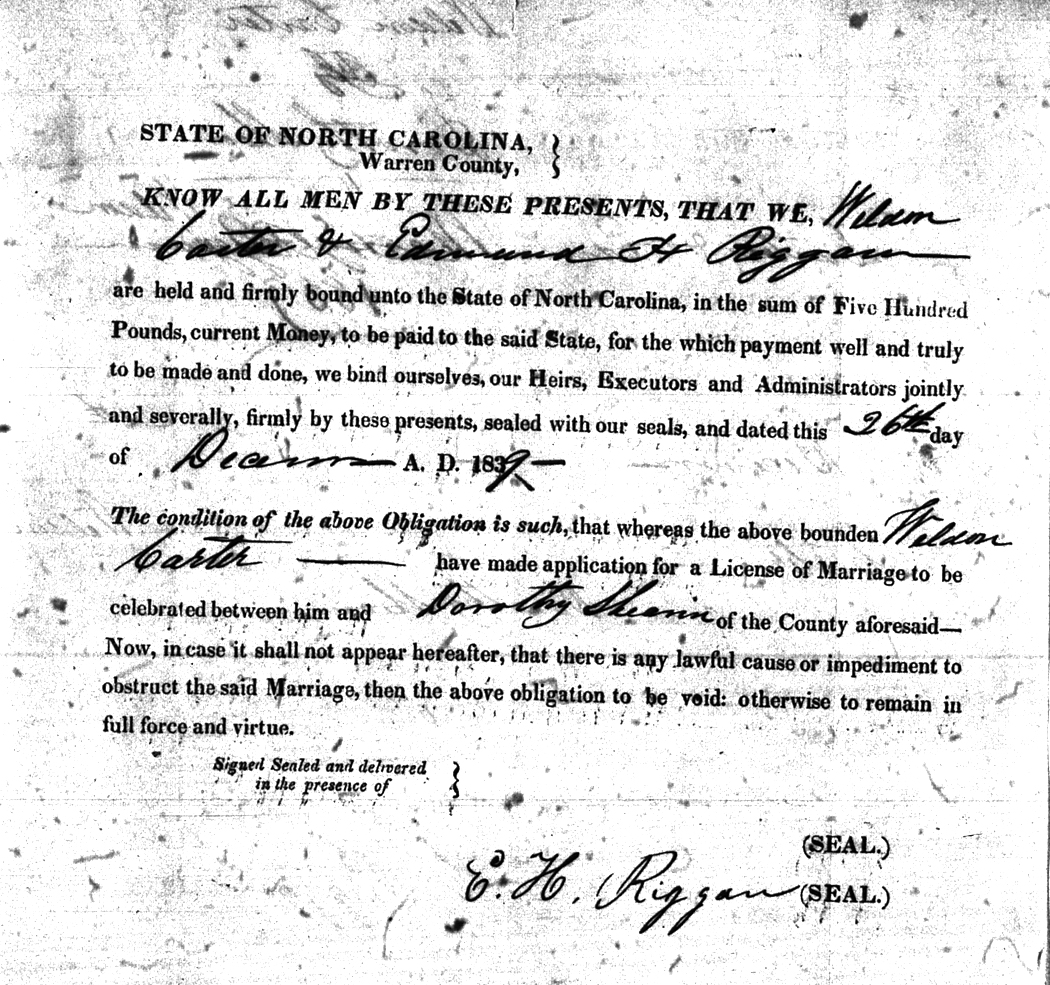 STATE OF NORTH CAROLINA, }
Warren County,
KNOW ALL MEN BY THESE PRESENTS, THAT WE, Weldon
Carter & Edmund H Riggan
are held and firmly bound unto the State of North Carolina, in the sum of Five Hundred
Pounds, current Money, to be paid to the said State, for the which payment well and truly
to be made and done, we bind ourselves, our Heirs, Executors and Administrators jointly
and severally, firmly by these presents, sealed with our seals, and dated this 26th day
of A. D. 1839—
The condition of the above Obligation is such, that whereas the above bounden Weldon
Carter — have made application for a License of Marriage to be
celebrated between him and Dorothy Shearin of the County aforesaid—
Now, in case it shall not appear hereafter, that there is any lawful cause or impediment to
obstruct the said Marriage, then the above obligation to be void: otherwise to remain in
full force and virtue.
Signed Sealed and delivered }
in the presence of
(SEAL.)
E. H. Riggan (SEAL.)